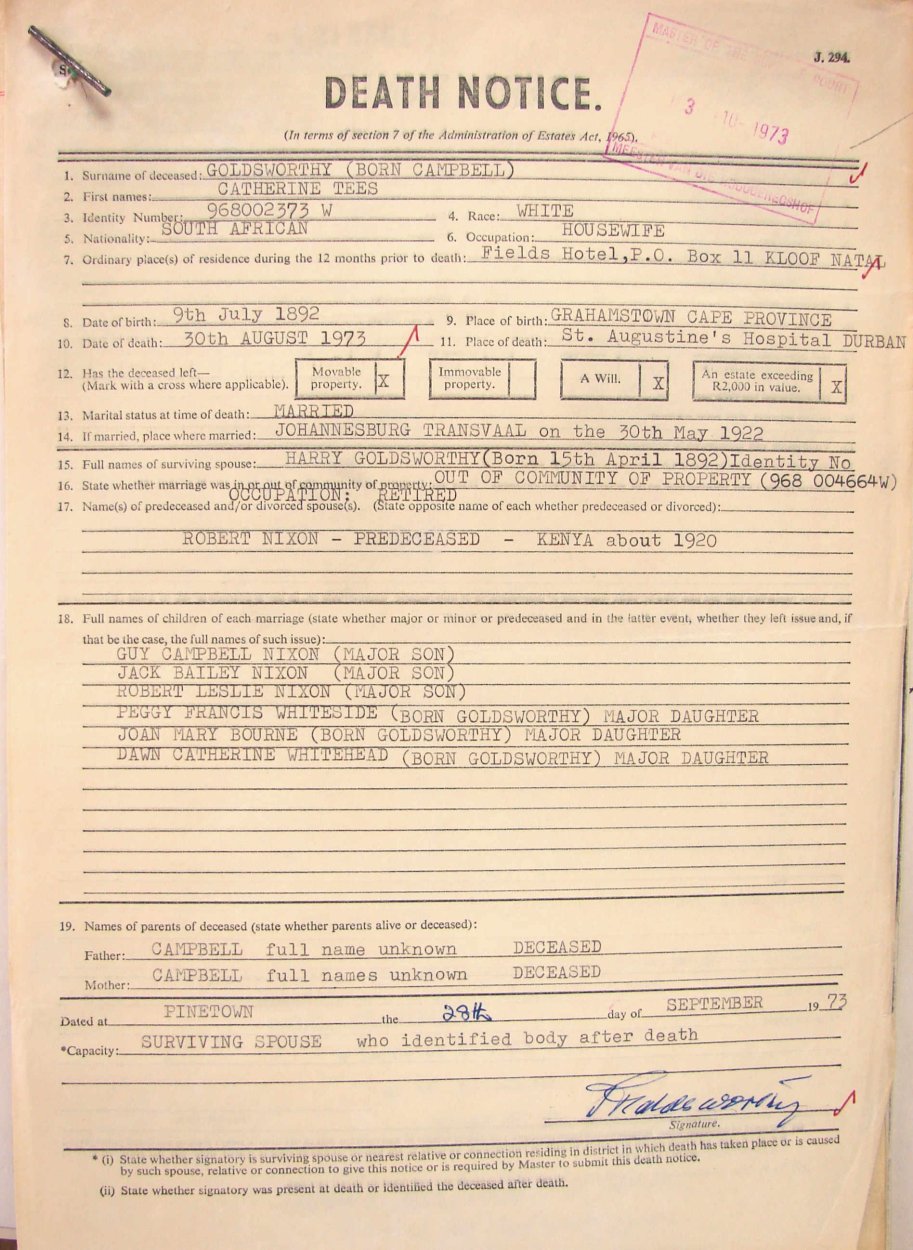 J. 294.
MASTER OF THE
3 10 1973
MEESTER VAN DIE HOOGGEREGSHOF
DEATH NOTICE.
(In terms of section 7 of the Administration of Estates Act, 1965).
1. Surname of deceased: GOLDSWORTHY (BORN CAMPBELL)
2. First names: CATHERINE TEES
3. Identity Number: 968002373 W 4. Race: WHITE
5. Nationality: SOUTH AFRICAN 6. Occupation: HOUSEWIFE
7. Ordinary place(s) of residence during the 12 months prior to death: Fields Hotel,P.O. Box 11 KLOOF NATAL
8. Date of birth: 9th July 1892 9. Place of birth: GRAHAMSTOWN CAPE PROVINCE
10. Date of death: 30th AUGUST 1973 11. Place of death: St. Augustine's Hospital DURBAN
12. Has the deceased left— Movable Immovable A Will. X An estate exceeding
(Mark with a cross where applicable). property. X property. R2,000 in value. X
13. Marital status at time of death: MARRIED
14. If married, place where married: JOHANNESBURG TRANSVAAL on the 30th May 1922
15. Full names of surviving spouse: HARRY GOLDSWORTHY(Born 15th April 1892)Identity No
16. State whether marriage was in or out of community of property: OUT OF COMMUNITY OF PROPERTY (968 004664W)
OCCUPATION: RETIRED
17. Name(s) of predeceased and/or divorced spouse(s). (State opposite name of each whether predeceased or divorced):
ROBERT NIXON - PREDECEASED - KENYA about 1920
18. Full names of children of each marriage (state whether major or minor or predeceased and in the latter event, whether they left issue and, if
that be the case, the full names of such issue):
GUY CAMPBELL NIXON (MAJOR SON)
JACK BAILEY NIXON (MAJOR SON)
ROBERT LESLIE NIXON (MAJOR SON)
PEGGY FRANCIS WHITESIDE (BORN GOLDSWORTHY) MAJOR DAUGHTER
JOAN MARY BOURNE (BORN GOLDSWORTHY) MAJOR DAUGHTER
DAWN CATHERINE WHITEHEAD (BORN GOLDSWORTHY) MAJOR DAUGHTER
19. Names of parents of deceased (state whether parents alive or deceased):
Father: CAMPBELL full name unknown DECEASED
Mother: CAMPBELL full names unknown DECEASED
Dated at PINETOWN the 28th day of SEPTEMBER 1973
*Capacity: SURVIVING SPOUSE who identified body after death
Signature.
* (i) State whether signatory is surviving spouse or nearest relative or connection residing in district in which death has taken place or is caused
by such spouse, relative or connection to give this notice or is required by Master to submit this death notice.
(ii) State whether signatory was present at death or identified the deceased after death.